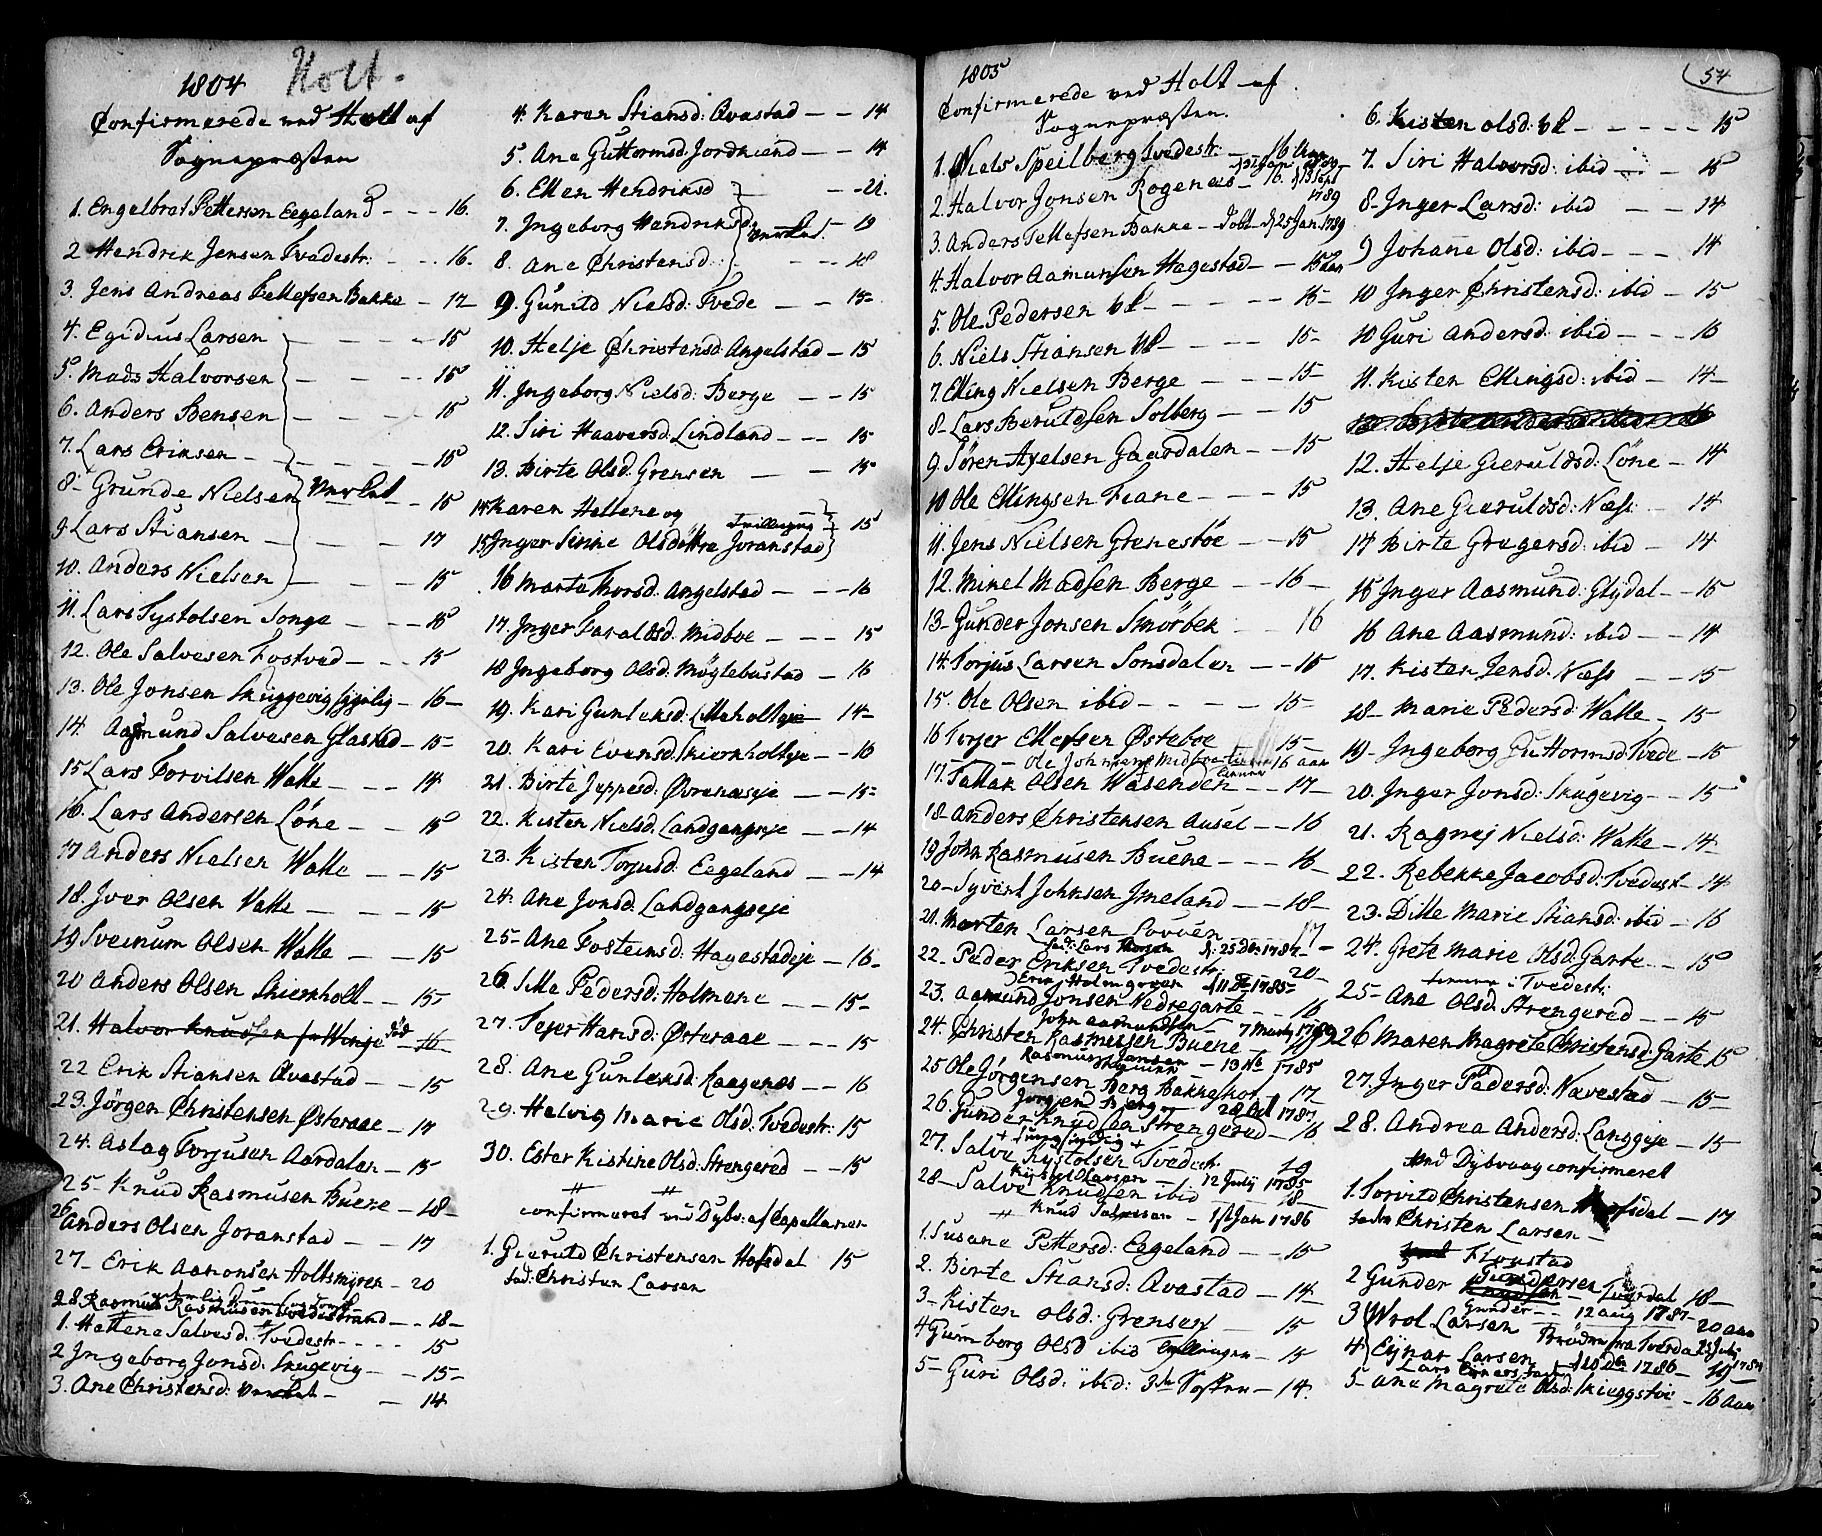 1804 Holt.
Confirmerede ved Holt af
Sognepræsten
1. Engelbrat Pettersen Eegeland - - - 16.
2 Hendrik Jensen Tvedestr: - - - 16.
3. Jens Andreas Tellefsen Bakke - 17
4. Egidius Larsen - - - - 15
5. Mads Halvorsen - - - 15
6. Anders Bensen - - - 15
7. Lars Eriksen - - - - 15
8- Grunde Nielsen Verket - 15
9- Lars Stiansen - - - - 17
10. Anders Nielsen - - - 15
11. Lars Tystolsen Songe - - - 15
12. Ole Salvesen Fostved - - - 15
13. Ole Jonsen Skuggevig - 16-
14. Aasmund Salvesen Glastad - 15-
15 Lars Torvilsen Walle - - - 14
16. Lars Andersen Löne - - 15
17 Anders Nielsen Walle - - 15
18. Iver Olsen Valle - - - 15
19 Sveinum Olsen Walle - - 15
20 Anders Olsen Skiernholt - - 15-
21. Halvor Knudsen 16
22 Erik Stiansen Qvastad - - 15
23. Jörgen Christensen Østeraae - 17
24. Aslag Torjusen Aardalen - 15
25- Knud Rasmusen Buene - 18-
26 Anders Olsen Joranstad - - 17
27- Erik Aanonsen Holtsmyren - 20
28. Rasmus Rasmusen Tvedestrand - - 18-
1. Hellene Salvesd: Tvedestr - - - - 15
2 Ingeborg Jonsd: Skugevig - - 15-
3. Ane Christensd: Verket - - 14
4. Karen Stiansd: Qvastad - - 14
5. Ane Guttormsd: Jordkiend - - 14
6. Ellen Hendriksd - - 21.
7. Ingeborg Hendriksd: Verket - 19
8. Ane Christensd: - - - 18
9. Gunild Nielsd: Tvede - - 15-
10. Helje Christensd: Angelstad - 15
11. Ingeborg Nielsd: Berge - - 15
12. Siri Haaversd: Lindland - - - 15
13. Birte Olsd: Grensen - - 15-
14 Karen Hellene og
15 Inger Sinne Olsdöttre Joranstad Tvillinger 15
16 Marte Thorsd: Angelstad - - - 16
17 Inger Taraldsd: Midboe - - - 15
18 Ingeborg Olsd: Möglebustad - 16
19. Kari Gunleksd: - 14-
20. Kari Evensd: Skiernholteje - - 16
21. Birte Jeppesd: Øvrenæseje - - 15-
22. Kisten Nielsd: Landgangseje - - 14
23. Kisten Torjusd: Eegeland - - 14
24. Ane Jonsd: Landgangseje
25- Ane Tosteinsd: Hagestadeje - 16-
26 Silla Pedersd: Holmene - - 15-
27. Tejer Hansd: Østeraae - - 15
28. Ane Gunleksd: Raagenæs - - 16
29. Helvig Marie Olsd: Tvedestr: 15
30. Ester Kistine Olsd: Strengered - - 15
confirmeret ved Dybv: af Capellanen
1. Gieruld Christensen Hofsdal 15
fad: Christen Larsen
1805 54
Confirmerede ved Holt af
Sognepræsten.
1. Niels Speilberg Tvedestr: - 16 Aar
2. Halvor Jonsen Rogenes - 16. d 13 Sept 1789
3. Anders Tellefsen Bakke - döbt d 25 Jan 1789
4. Halvor Aamunsen Hagestad - - 15 Aar
5. Ole Pedersen - - - - 15-
6. Niels Stiansen - - - - 15-
7. Elling Nielsen Berge - - - 15-
8- Lars Beruldsen Solberg - - - 15
9. Sören Axelsen Gaardalen - - 15
10 Ole Ellingsen Fiane - - - 15
11. Jens Nielsen Grenestöe - - 15
12. Mikel Madsen Berge - - 16 -
13- Gunder Jonsen Smörbek - - 16
14. Torjus Larsen Sonsdalen - - 15
15. Ole Olsen ibid - - - - 15-
16 Torjer Ellefsen Østeboe 15-
Ole Johnsen 16 aar
17. Tallak Olsen Wasenden - - 17-
18- Anders Christensen Ausel - - 16
19 John Rasmusen Buene - - - 16-
20- Syvert Johnsen Imeland - - 18-
21. Morten Larsen 17
fad: Lars - d: 25 Dec 1787-
22. Peder Eriksen Tvedestr: 20-
Erik Holmgreen d 11 1785-
23. Aamund Jonsen Nedregarte - - 16
John Aasmundsen - 7 Marty
24. Christen Rasmusen Buene
Rasmus Jansen - 13 No 1785
25 Ole Jörgensen Berg Bakkeskot 17
Jörgen Berg 28 Oct 1787
26. Gunder Knudsen Strengered - 16
27. Salve Kystolsen Tvedestr: 19
Kystol Olsen - 12 July 1785
28- Salve Knudsen ibid 18-
Knud Salvesen - 1st Jan 1786
1. Susane Pettersd: Eegeland - - 15
2. Birte Stiansd: Qvastad - 14-
3- Kisten Olsd: Grensen - 15
4 Gumborg Olsd ibid Tvillinger - 15
5- Guri Olsd: ibid: 3de Søsken - 14.
6. Kisten Olsd: - - - - - 15
7. Siri Halvorsd: ibid - - 15
8- Inger Larsd: ibid - - 14
9 Johane Olsd: ibid - - - 14
10 Inger Christensd: ibid - 15
10 Guri Andersd: ibid - - - 16
11. Kisten Ellingsd: ibid - 14-
12. Helje Gieruldsd: Löne - 14
13. Ane Gieruldsd: Næss: - 14
14 Birte Gregersd: ibid - 14
15 Inger Aasmund: Glydal - - 15
16 Ane Aasmund: ibid - - 14
17. Kisten Jensd: Næss - - 15
18- Marie Pedersd: Walle - 15
19- Ingeborg Guttormsd Tvede - 15
20. Inger Jonsd: Skugevig - - 15
21. Ragnej Nielsd: Walle - 14-
22. Rebekke Jacobsd: Tvedest - 14
23. Dille Marie Stiansd: ibid - 16
24. Grete Marie Olsd: Garte - - 15
tienner i Tvedestr:
25- Ane Olsd: Strengered - - 15
26 Maren Magrete Christensd: Garte 15
27. Inger Pedersd: Nævestad - 15-
28. Andrea Andersd: Langgeje - 15
Ved Dybvaag confirmeret
1. Torvild Christensen Hofsdal - 17
fader Christen Larsen -
Flovstad
2 Gunder Gundersen Tverdal 18-
Gunder - - 12 aug 1787-
3 Wrol Larsen Brödre fra Tverdal 20 aar
4. Ejnar Larsen 1786 - 19
5- Ane Magrete Olsd: - 16 Aar